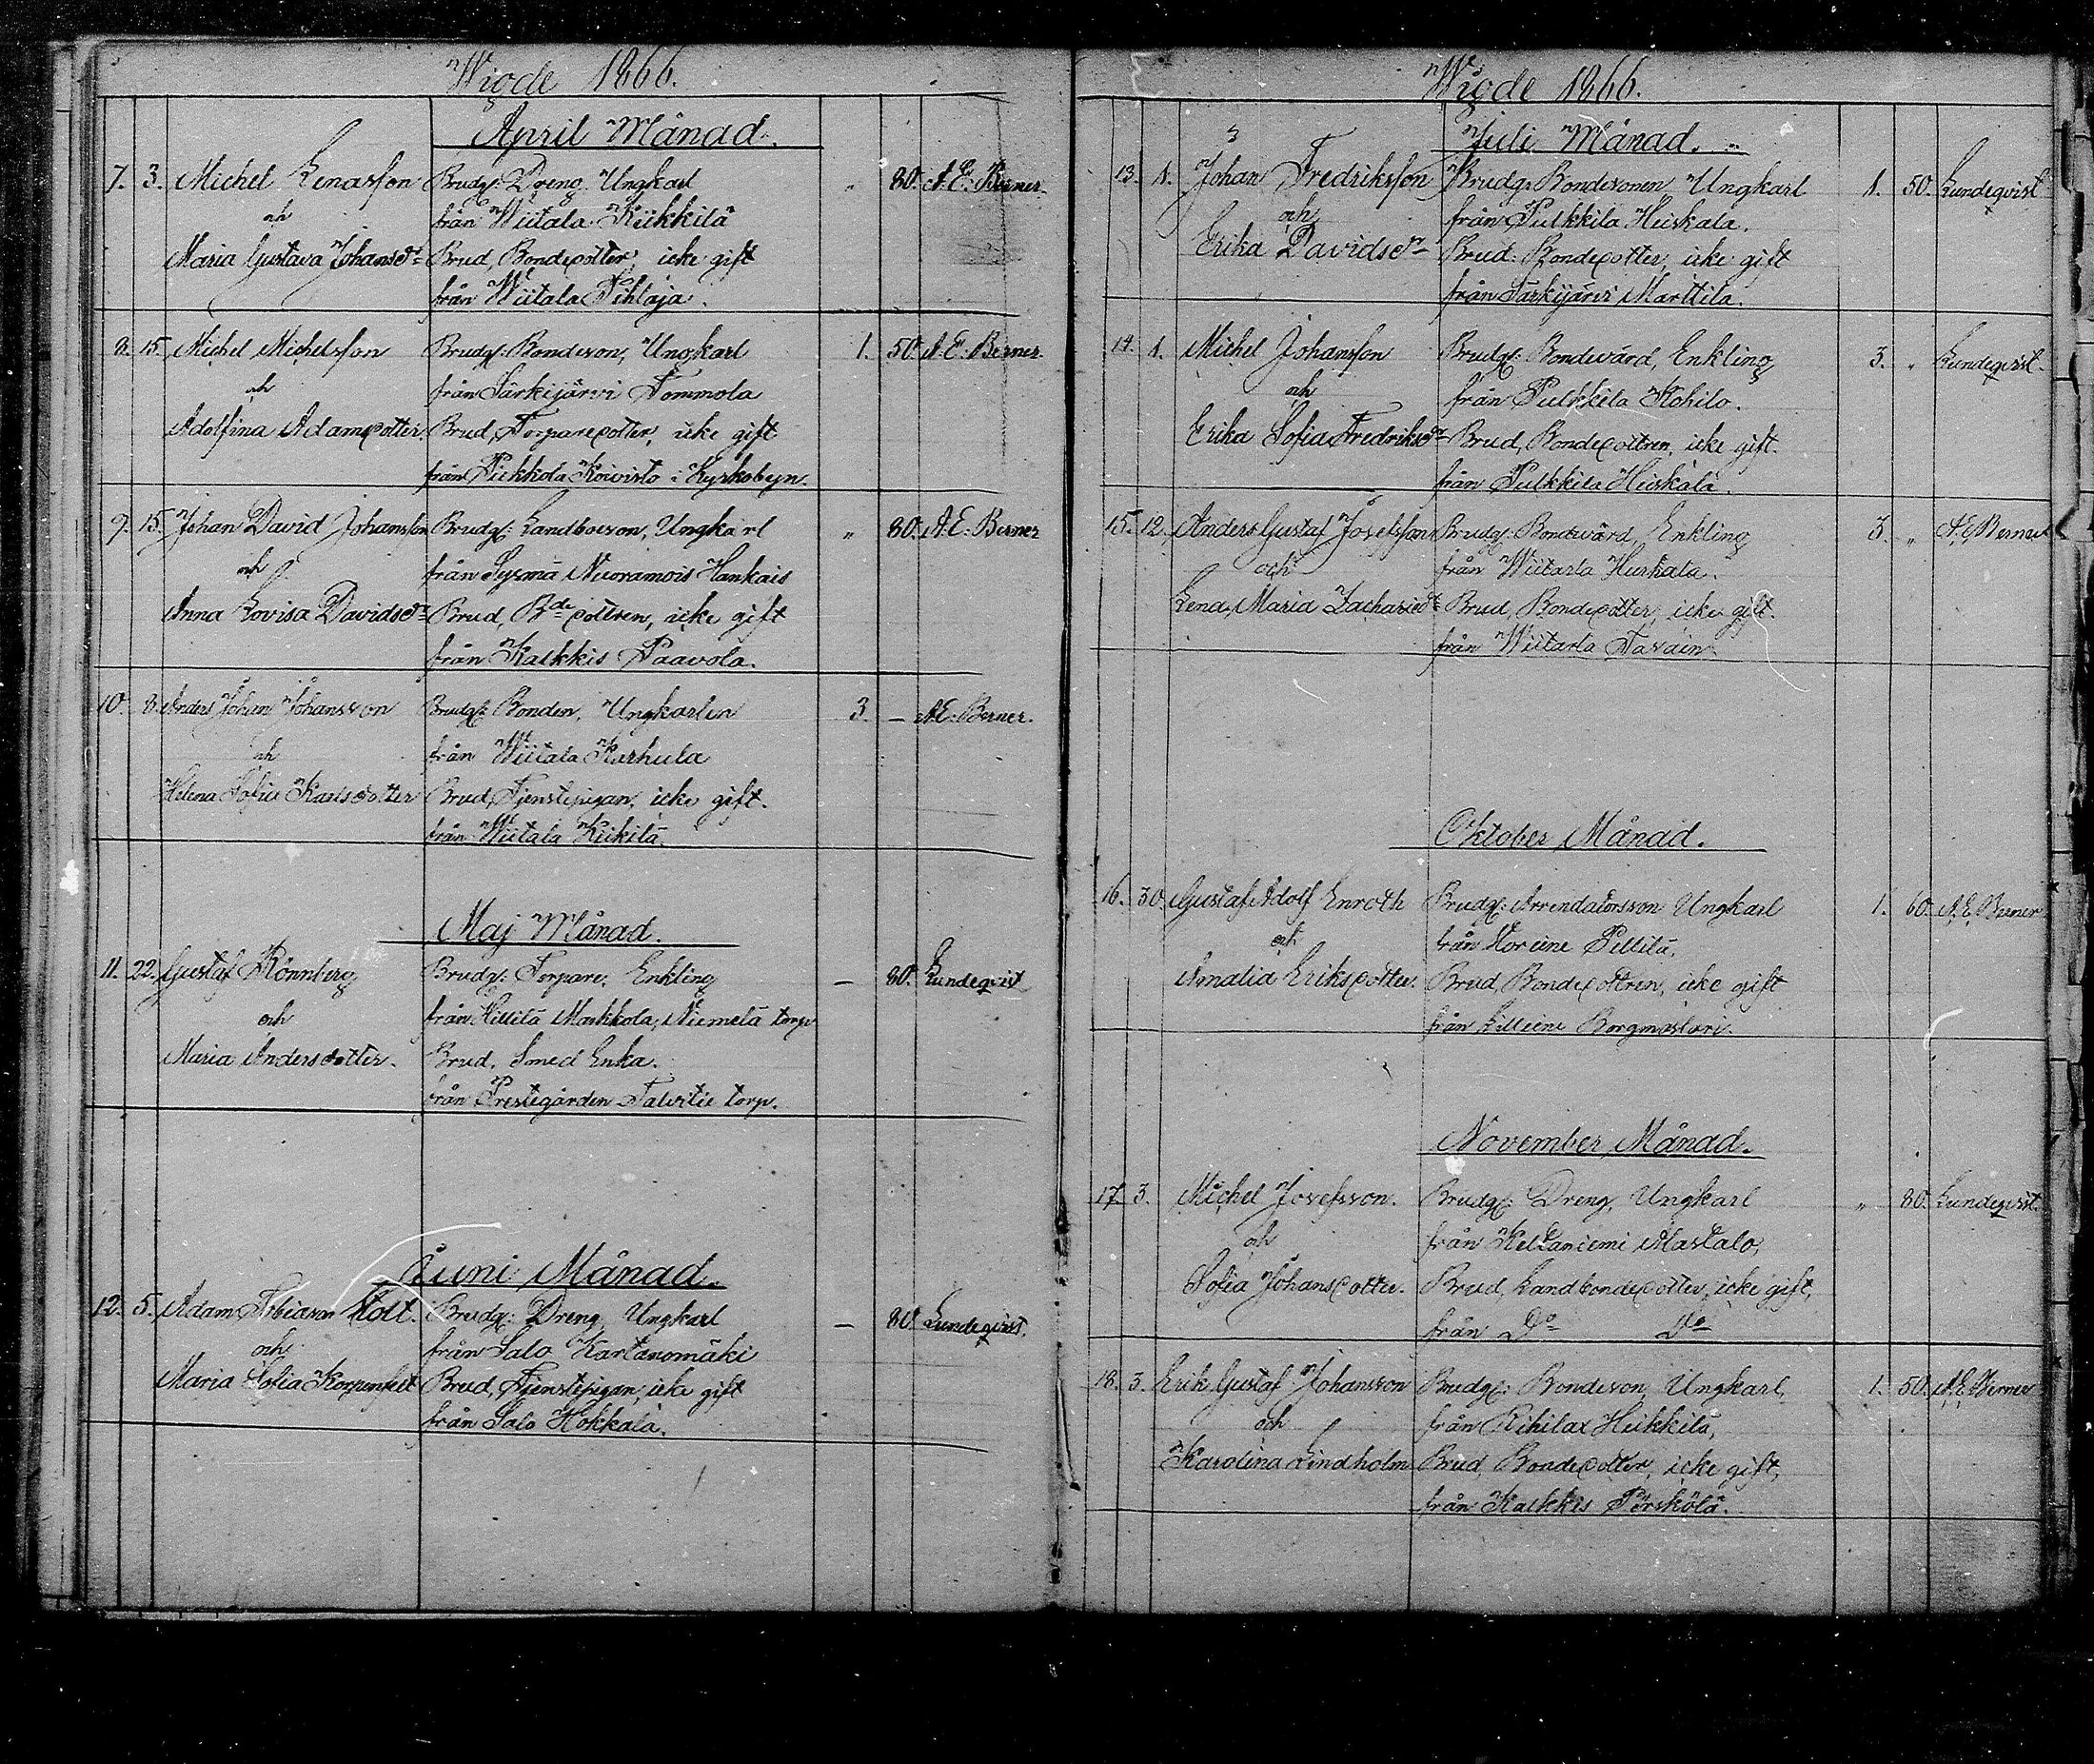 Wigde 1866.
April Månad.
7. 3. Michel Lenasson Brudg: Dreng Ungkarl " 80. A. E. Berner.
och från Wiitala Kiikkilä
Maria Gustava Johansdr Brud, Bondedotter, icke gift
från Wiitala Pihlaja.
8. 15. Michel Michelsson Brudg: Bondeson, Ungkarl 1. 50. A. E. Berner.
och från Särkijärvi Tommola
Adolfina Adamsdotter. Brud, Torparedotter, icke gift
från Koivisto i Kyrkobyn.
9. 15. Johan David Johansson Brudg: Landboeson, Ungkarl " 80. A. E. Berner
och från Sysmä Nuoramois Hankais
Anna Lovisa Davidsdr Brud, Bde dottren, icke gift
från Kalkkis Paavola.
10. 8. Anders Johan Johansson Brudg: Bonden, Ungkarlen 3. — A. E. Berner.
och från Wiitala Karhula
Helena Sofia Karlsdotter Brud, Tjenstepigan, icke gift.
från Wiitala Kiikilä.
Maj Månad.
11. 22. Gustaf Rönnberg Brudg: Torpare, Enkling — 80. Lundeqvist
och från Hillilä Markkola, Niemelä torp
Maria Andersdotter. Brud, Smed Enka.
från Prestegården Talvitie torp.
Juni Månad.
12. 5. Adam Tobiasson Kolt. Brudg: Dreng, Ungkarl — 80. Lundeqvist.
och från Salo Kartanomäki
Maria Sofia Brud, Tjenstepigan, icke gift
från Salo Hokkala.
Wigde 1866.
Juli Månad.
13. 1. Johan Fredriksson Brudg: Bondesonen Ungkarl 1. 50. Lundeqvist
och från Pulkkila Huskala.
Erika Davidsdr Brud: Bondedotter, icke gift
från Särkijärvi Marttila.
14. 1. Michel Johansson Brudg: Bondevärd, Enkling 3. " Lundeqvist.
och från Pulkkila Kohilo.
Erika Sofia Fredriksdr Brud, Bondedottren, icke gift.
från Pulkkila Huskala.
15. 12. Anders Gustaf Josefsson Brudg: Bondevärd, Enkling 3. " A. E. Berner
och från Wiitaila Hurkala.
Lena Maria Zachariedr Brud, Bondedotter, icke gift.
från Wiitaila Tavain
Oktober Månad.
16. 30. Gustaf Adolf Enroth Brudg: Arrendatorsson Ungkarl 1. 60. A. E. Berner
och från Pellilä,
Amalia Eriksdotter. Brud, Bondedottren, icke gift
från Borgmastari.
November Månad.
17. 3. Michel Josefsson. Brudg: Dreng, Ungkarl " 80. Lundeqvist.
och från Keltaniemi Mastalo,
Sofia Johansdotter. Brud, Landbondedotter, icke gift,
från Do Do
18. 3. Erik Gustaf Johansson Brudg: Bondeson, Ungkarl, 1. 50. A. E. Berner
och från Kihilax Heikkilä,
Karolina Lindholm Brud, Bondedotter, icke gift,
från Kalkkis Pörskölä.